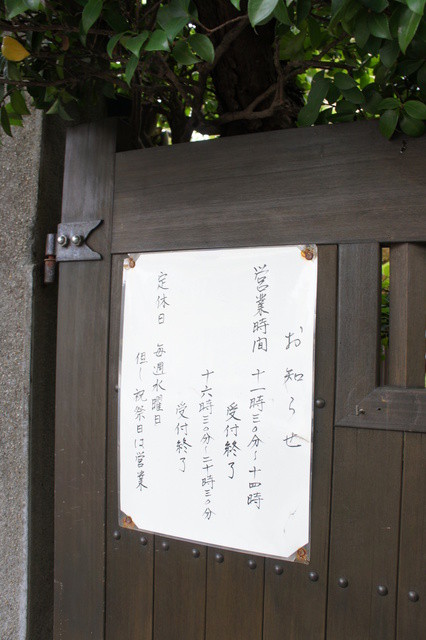 お知らせ
営業時間 十一時三〇分〜十四時
受付終了
十六時三〇分〜二十時三〇分
受付終了
定休日 毎週水曜日
但し祝祭日は営業